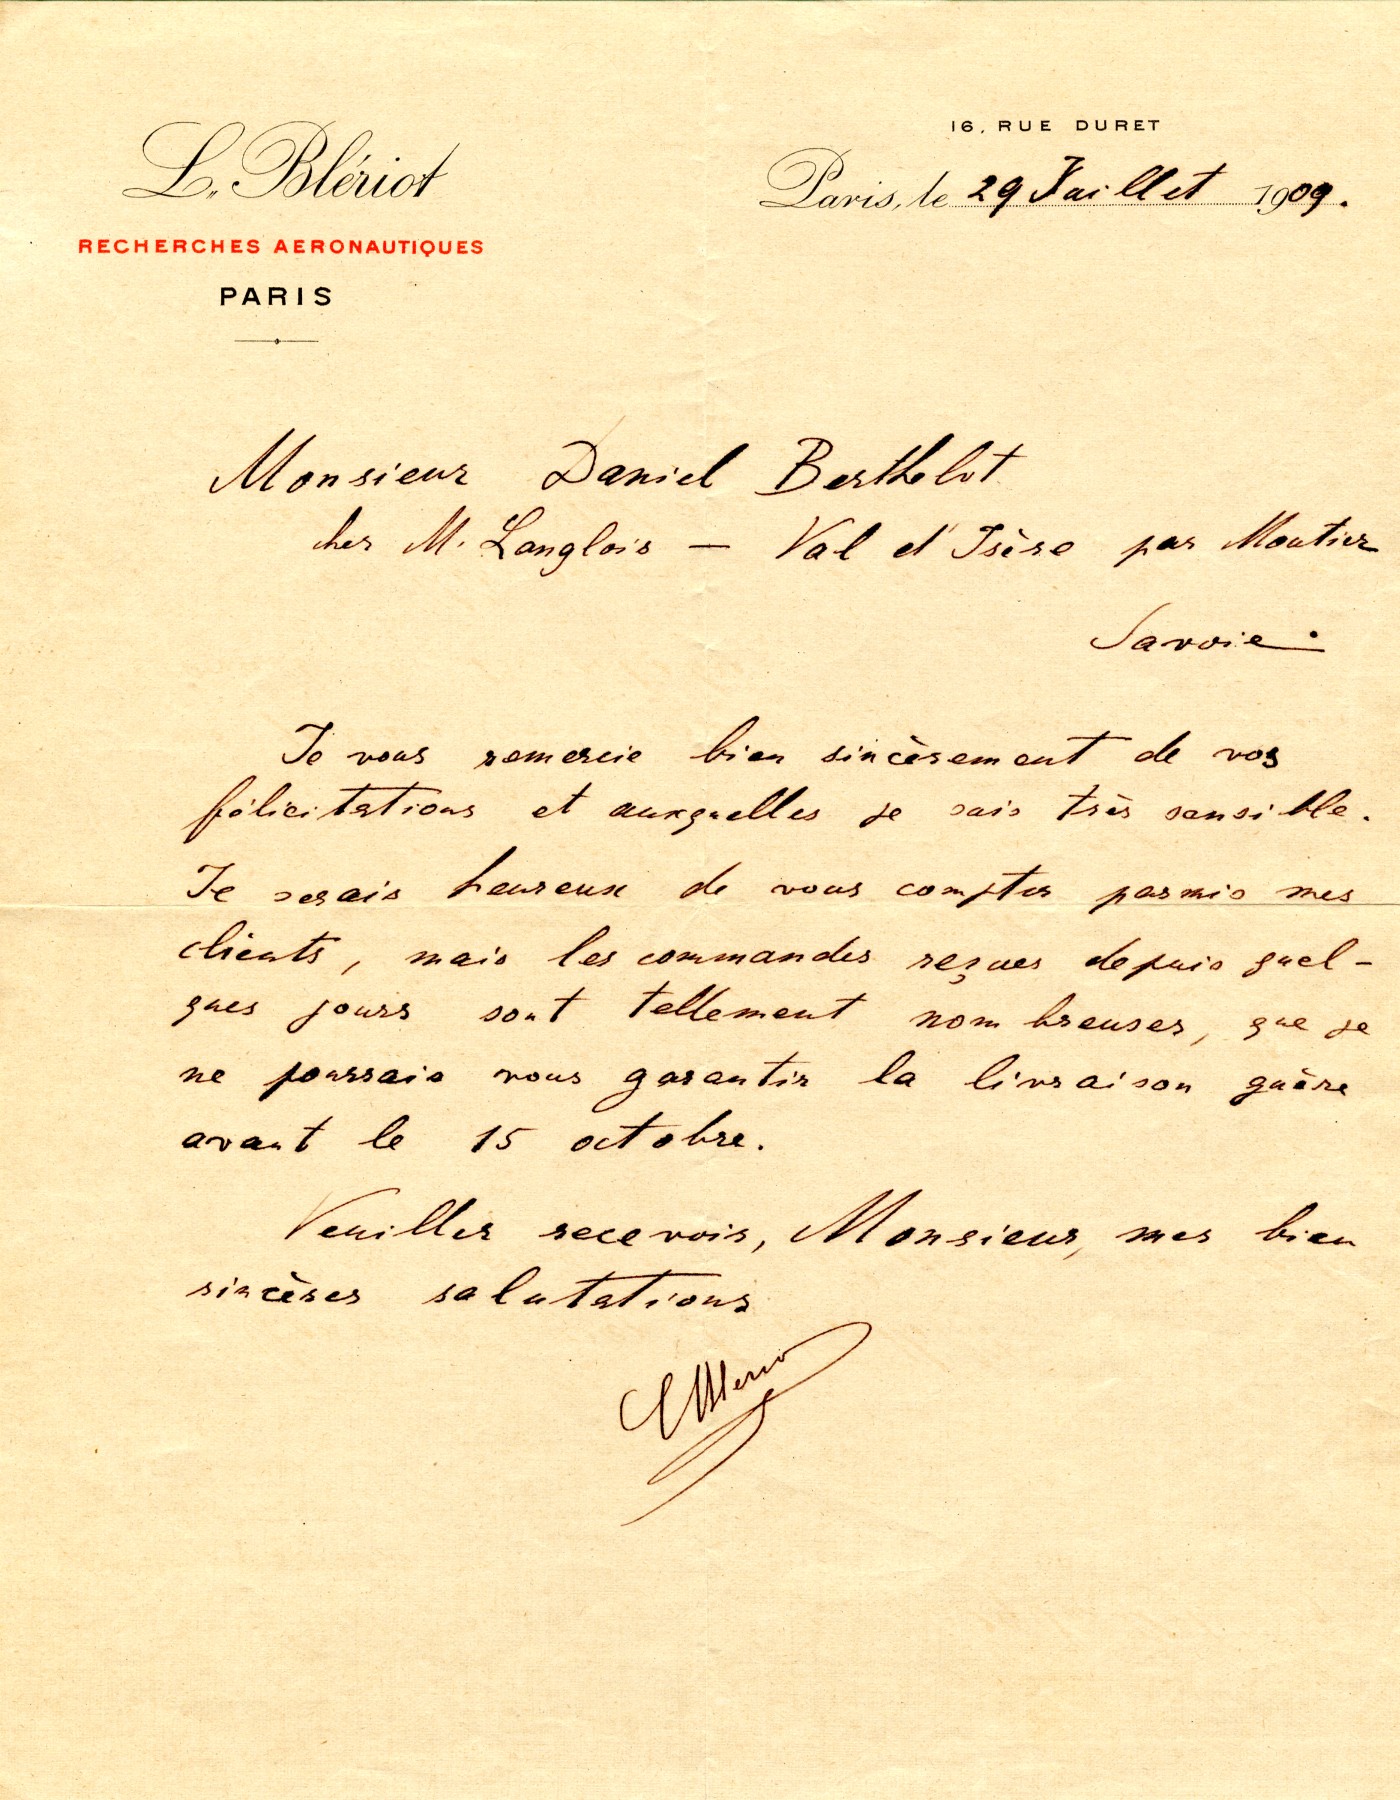 L. Blériot
RECHERCHES AERONAUTIQUES
PARIS
16, RUE DURET
Paris, le 29 Juillet 1909.
Monsieur Daniel Berthelot
chez M. Langlois — Val d'Isère par Moutier
Savoie.
Je vous remercie bien sincèrement de vos
félicitations et auxquelles je suis très sensible.
Je serais heureux de vous compter parmis mes
clients, mais les commandes reçues depuis quel-
ques jours sont tellement nombreuses, que je
ne pourrais vous garantir la livraison guère
avant le 15 octobre.
Veuillez recevoir, Monsieur, mes bien
sincères salutations
LBlériot